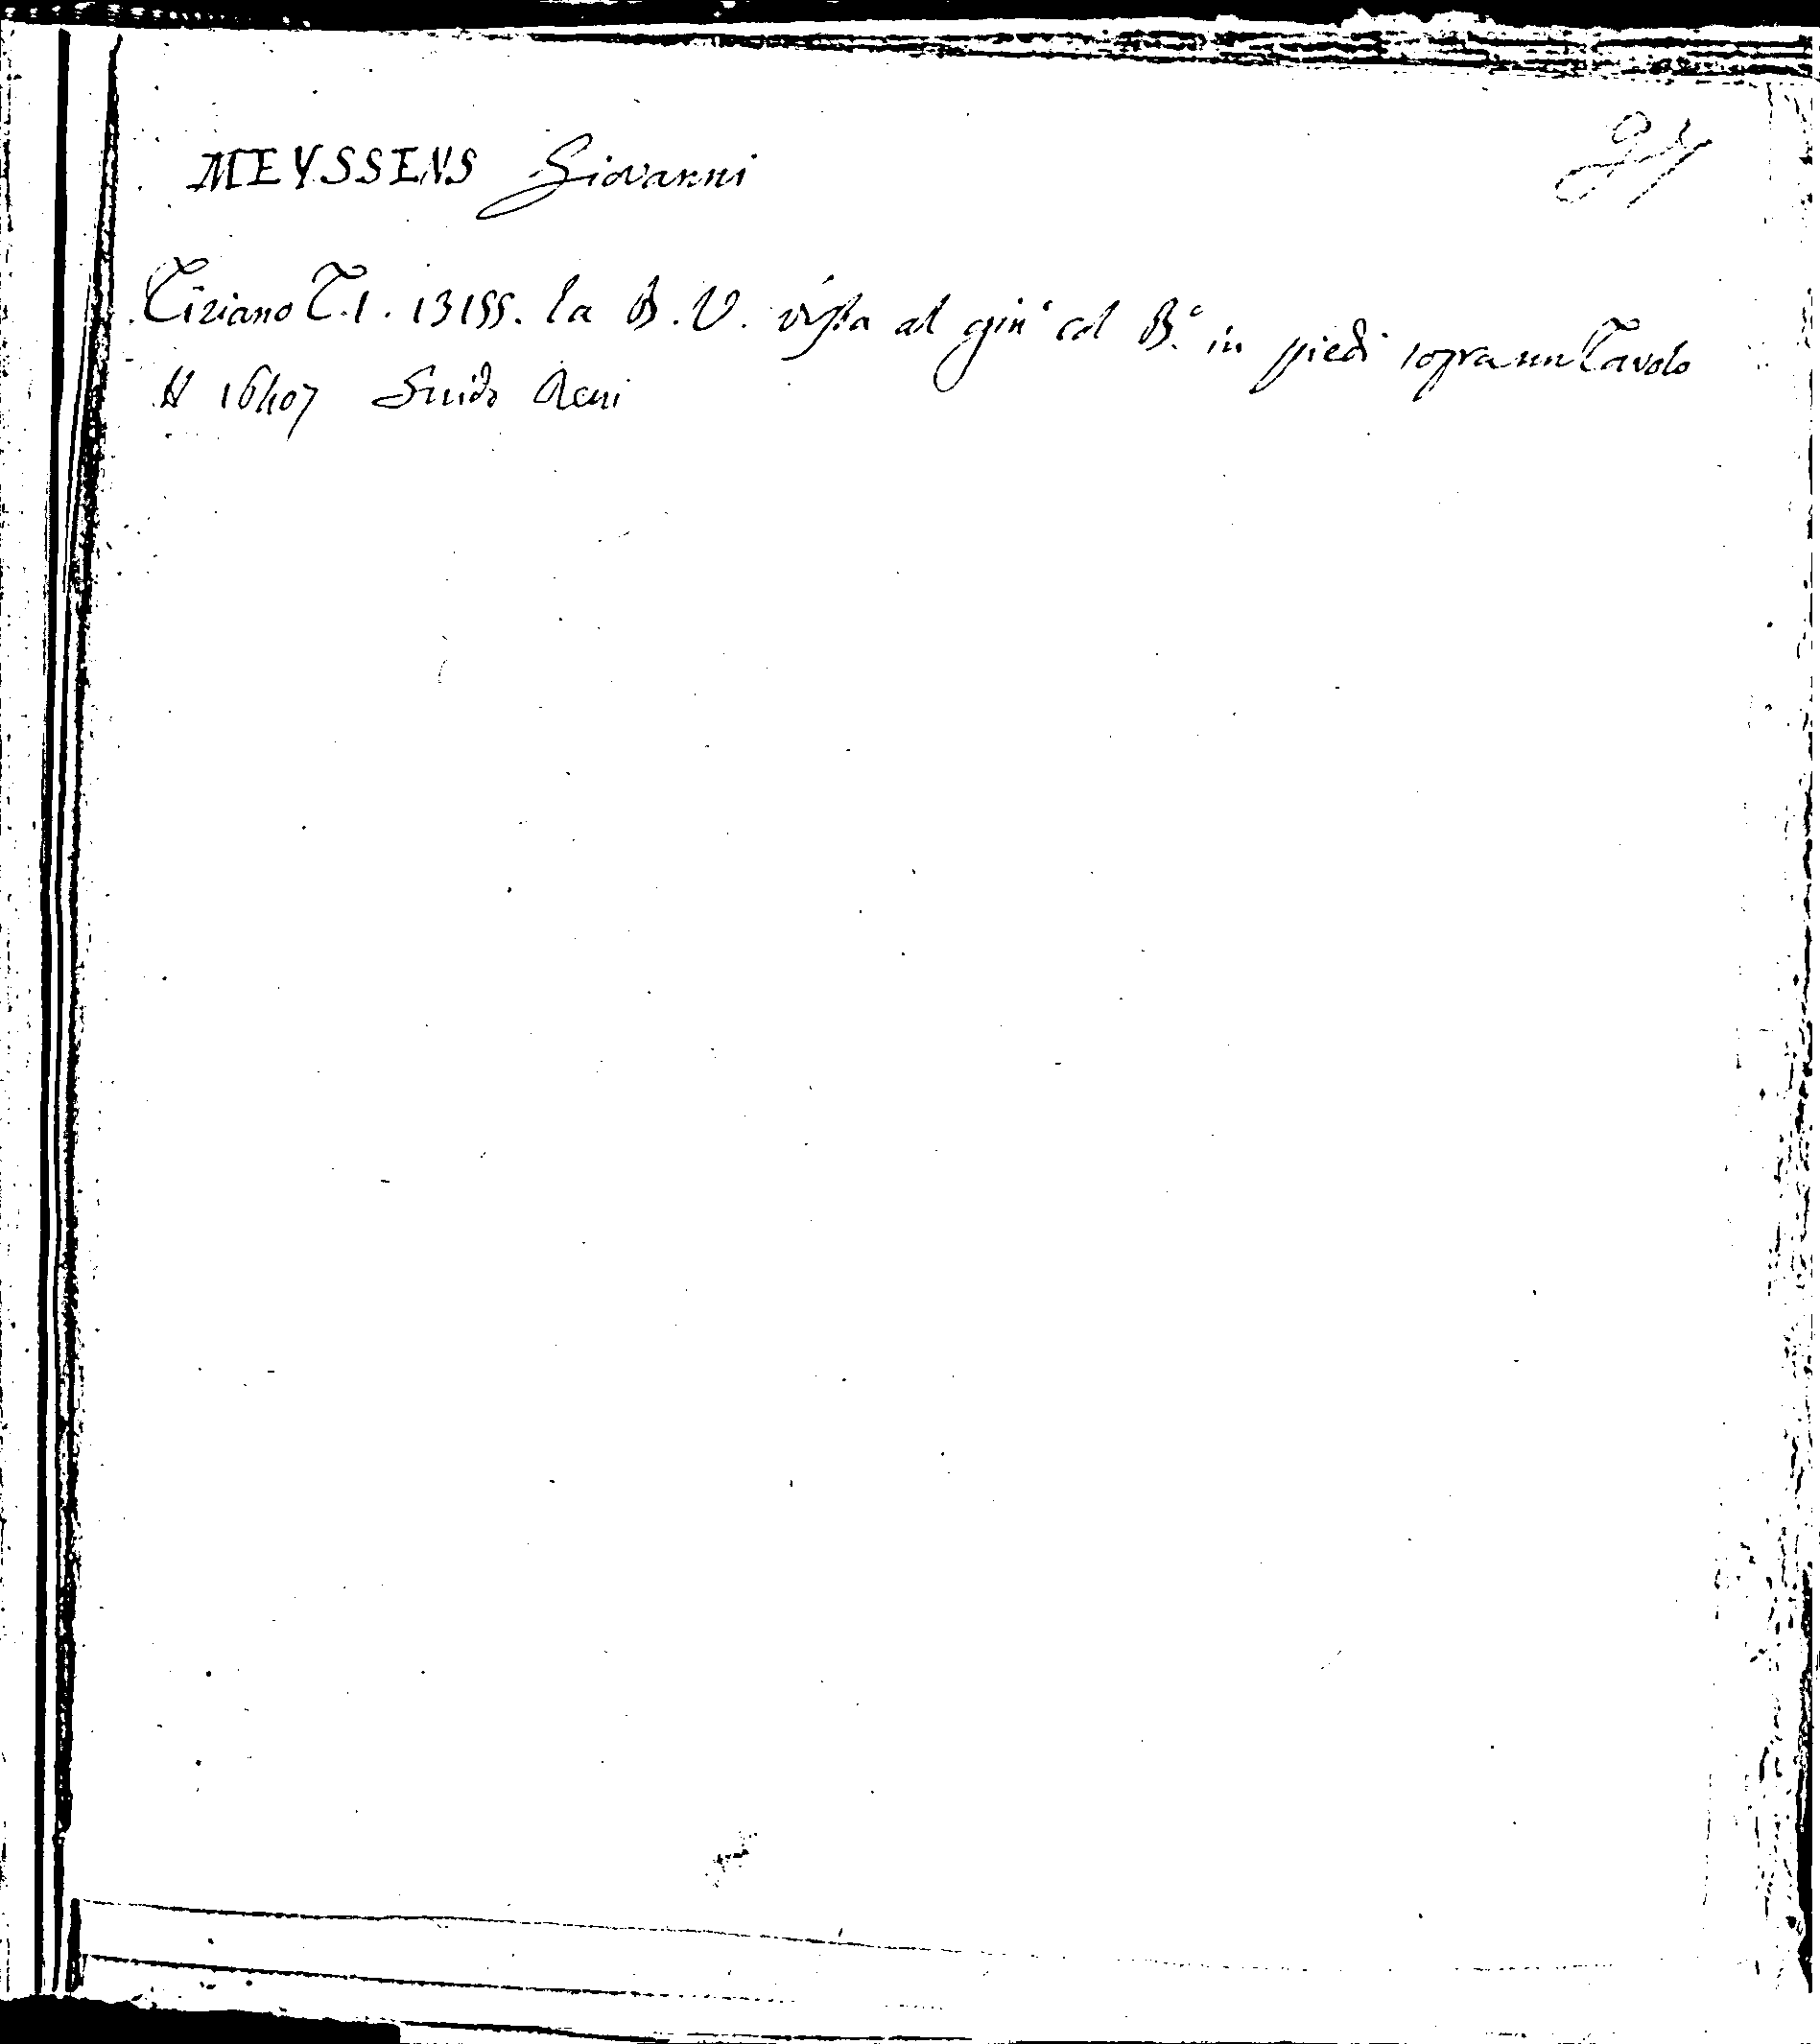 MEYSSENS Giovanni
Tiziano T.I. 13155. la B.V. vista al gin° col B.° in piedi sopra un Tavolo
H 16407 Guido Reni